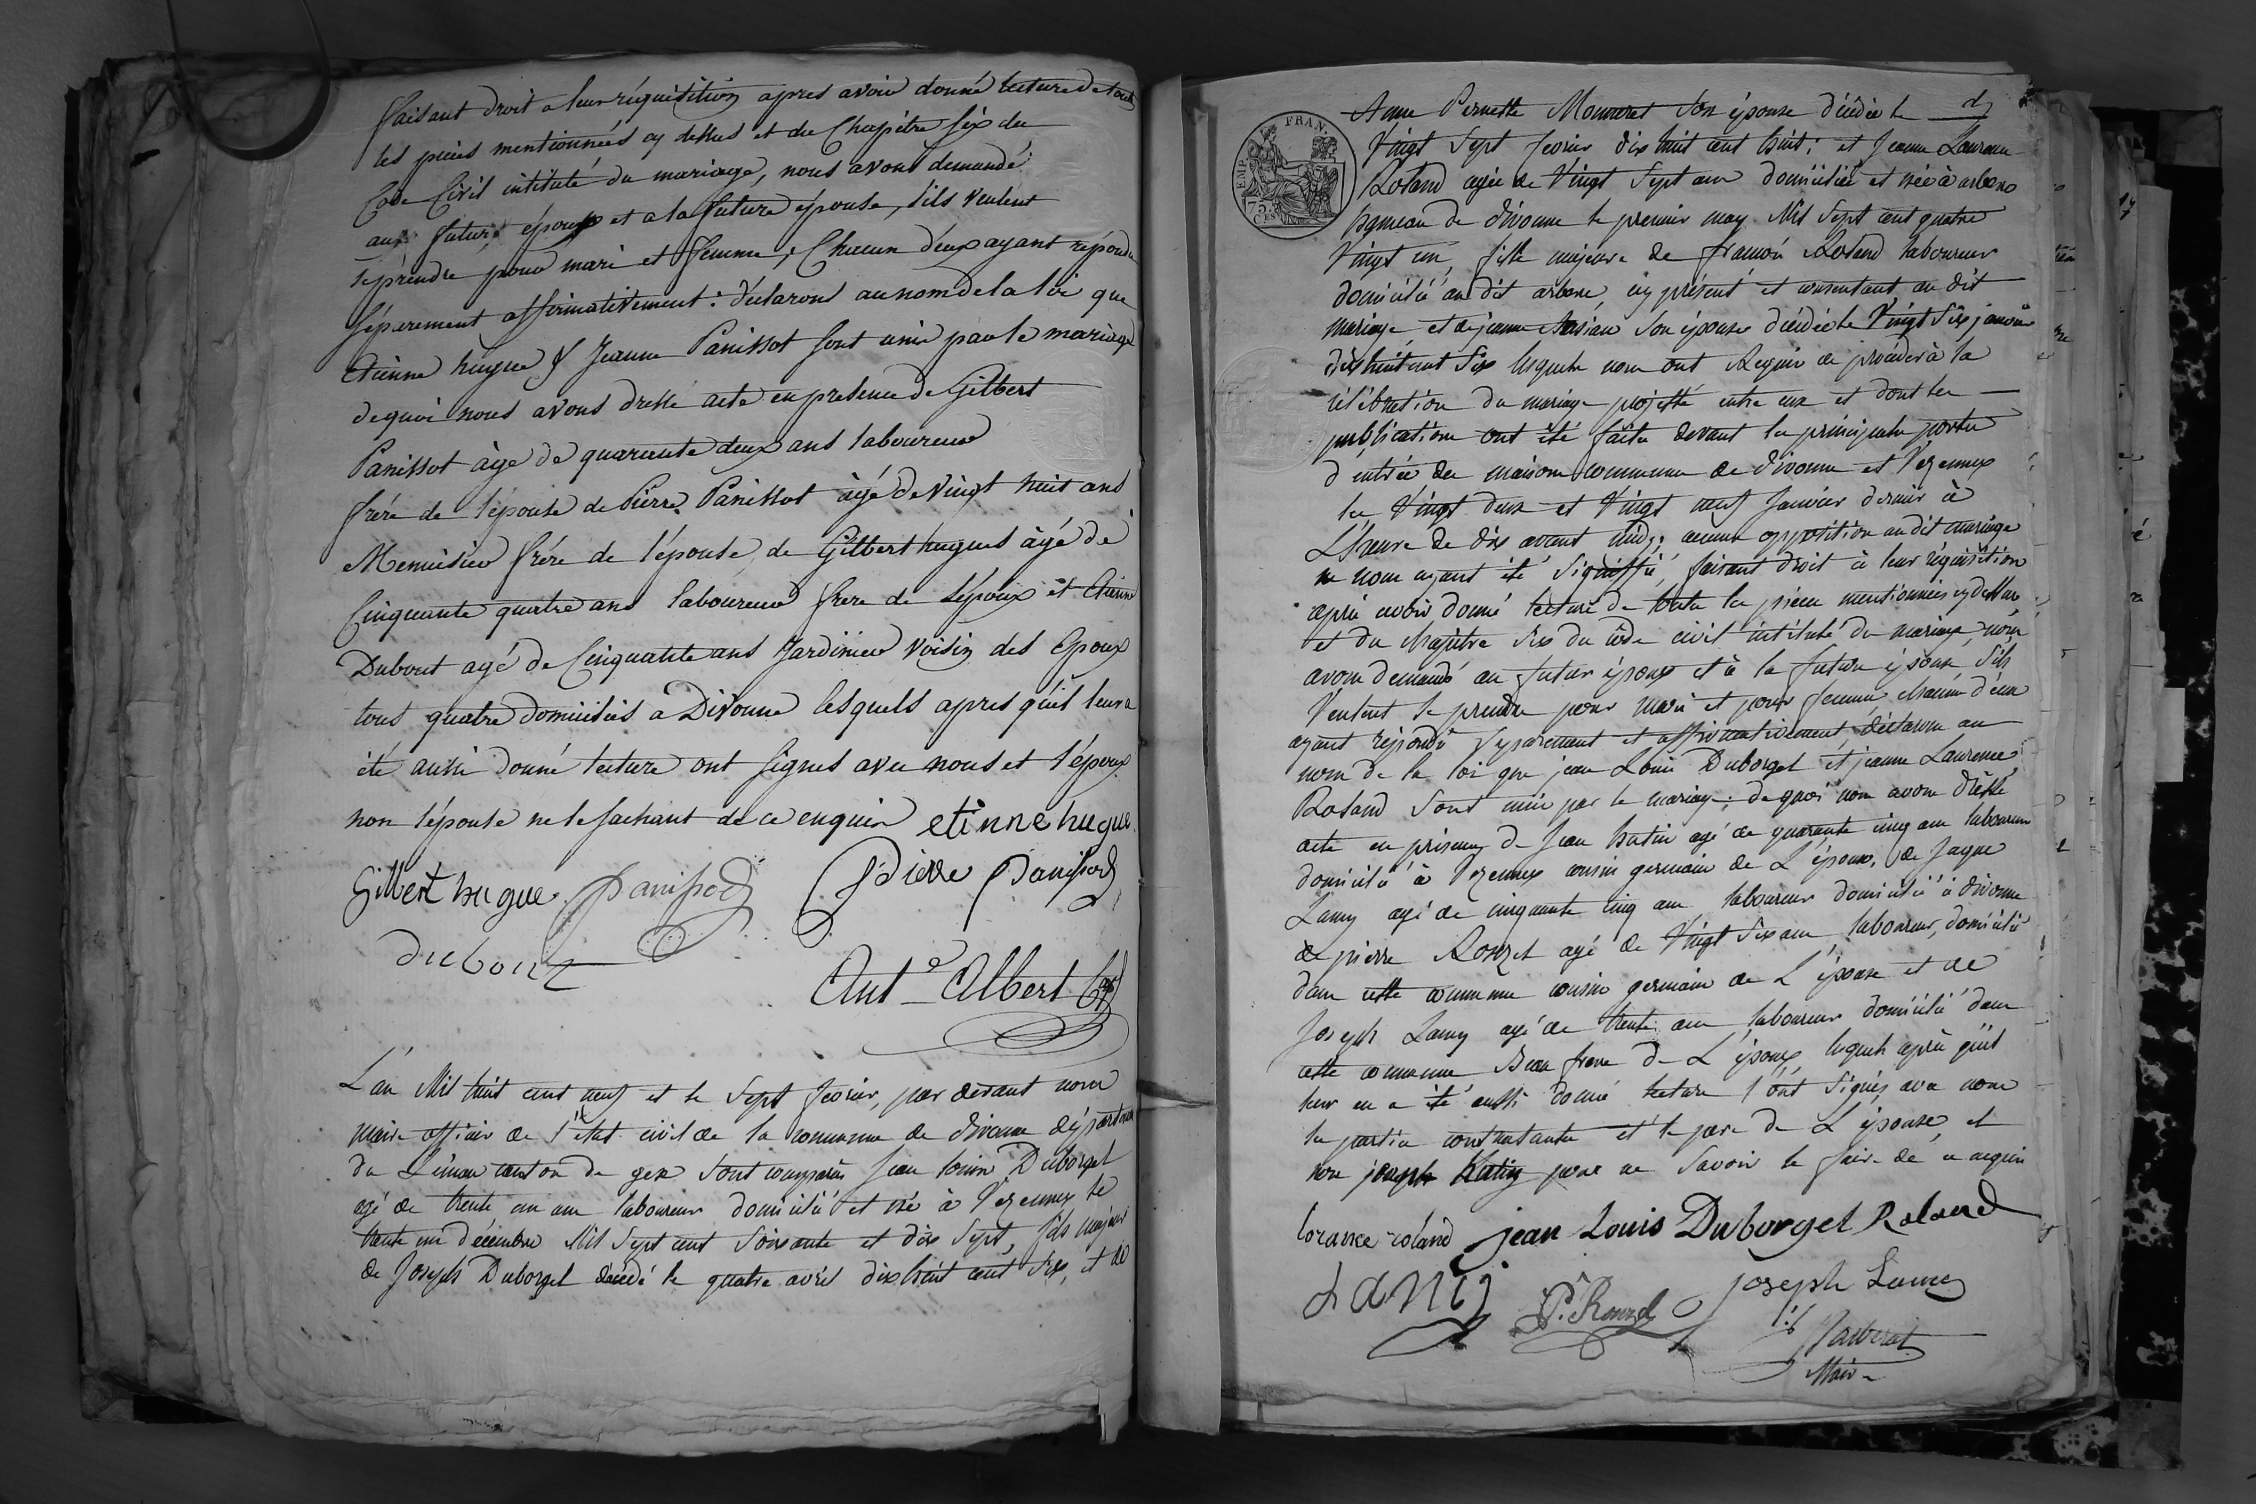 faisant droit a leur réquisition apres avoir donné lecture de toutes
les pieces mentionnées cy dessus et du Chapitre six du
Code Civil intitulé du mariage, nous avons demandé
aux futur époux et a la future épouse, s'ils veulent
se prendre pour mari et femme, Chacun d'eux ayant répondu
séparement affirmativement : déclarons au nom de la loi que
Etienne hugue & Jeanne Panissot sont unis par le mariage
de quoi nous avons dressé acte en presence de Gilbert
Panissot âge de quarante deux ans laboureur
frére de l'épouse de Pierre Panissot âgé de vingt huit ans
Menuisier frére de l'épouse de Gilbert hugues âgé de
Cinquante quatre ans laboureur frere de L'époux et Etienne
Dubout agé de Cinquante ans Jardinier voisin des Epoux
tous quatre domiciliés a Divonne lesquels apres qu'il leur a
été aussi donné lecture ont signés avec nous et l'époux
non l'épouse ne le sachant de ce enquis etienne hugue
Gilbert hugue Panissod Pierre Panissod
dubout
Ant.e Albert
L'an Mil huit cent neuf et le sept fevrier, par devant nous
maire officier de l'état civil de la commune de divonne département
du Léman canton de gex sont comparus Jean Louis Duborgel
agé de trente un ans laboureur domicilié et né à Vezennex le
trente un décembre Mil sept cent soixante et dix sept, fils majeur
de Joseph Duborgel décédé le quatre avril dix huit cent six, et de
Anne Pernette Mouneret son épouse décédée le
Vingt sept fevrier dix huit cent huit ; et Jeanne Laurence
Roland agée de Vingt sept ans domiciliée et née à arbere
hameau de divonne le premier may Mil sept cent quatre
Vingt un, fille majeure de françois Roland laboureur
domicilié au dit arbere, cy présent et consentant au dit
mariage et de jeanne son épouse décédée le Vingt six janvier
dix huit cent six lesquels nous ont Requis de procéder à la
célébration du mariage projetté entre eux et dont les
publications ont été faites devant la principale porte
d'entrée des maisons communes de divonne et Vezennex
les Vingt deux et Vingt neuf Janvier dernier à
L'heure de dix avant midy ; aucune opposition au dit mariage
ne nous ayant été signiffié, faisant droit à leur réquisition
après avoir donné lecture de toutes les pieces mentionnées cy dessus
et du chapitre six du code civil intitulé du mariage, nous
avons demandé au futur époux et à la future épouse s'ils
Veulent se prendre pour mari et pour femme chacun d'eux
ayant répondu séparement et affirmativement, déclarons au
nom de la loi que jean Louis Duborgel et jeanne Laurence
Roland sont unis par le mariage ; de quoi nous avons dressé
acte en présence de Jean hutin agé de quarante cinq ans laboureur
domicilié à Vezennex cousin germain de L'époux, de Jaque
Lamy agé de cinquante cinq ans laboureur domicilié à divonne
de pierre Rouzet agé de Vingt six ans, laboureur, domicilié
dans cette commune cousin germain de L'épouse et de
Joseph Lamy agé de trente ans laboureur domicilié dans
cette commune Beau frere de L'époux lesquels après qu'il
leur en a été aussi donné lecture l'ont signés avec nous
les parties contractantes et le pere de L'épouse, et
non joseph hutin pour ne savoir le faire de ce enquis
lorance roland jean Louis Duborgel Roland
LaMij P. Rouzet joseph Lamy
Maire
FRAN.
EMP.
75 c